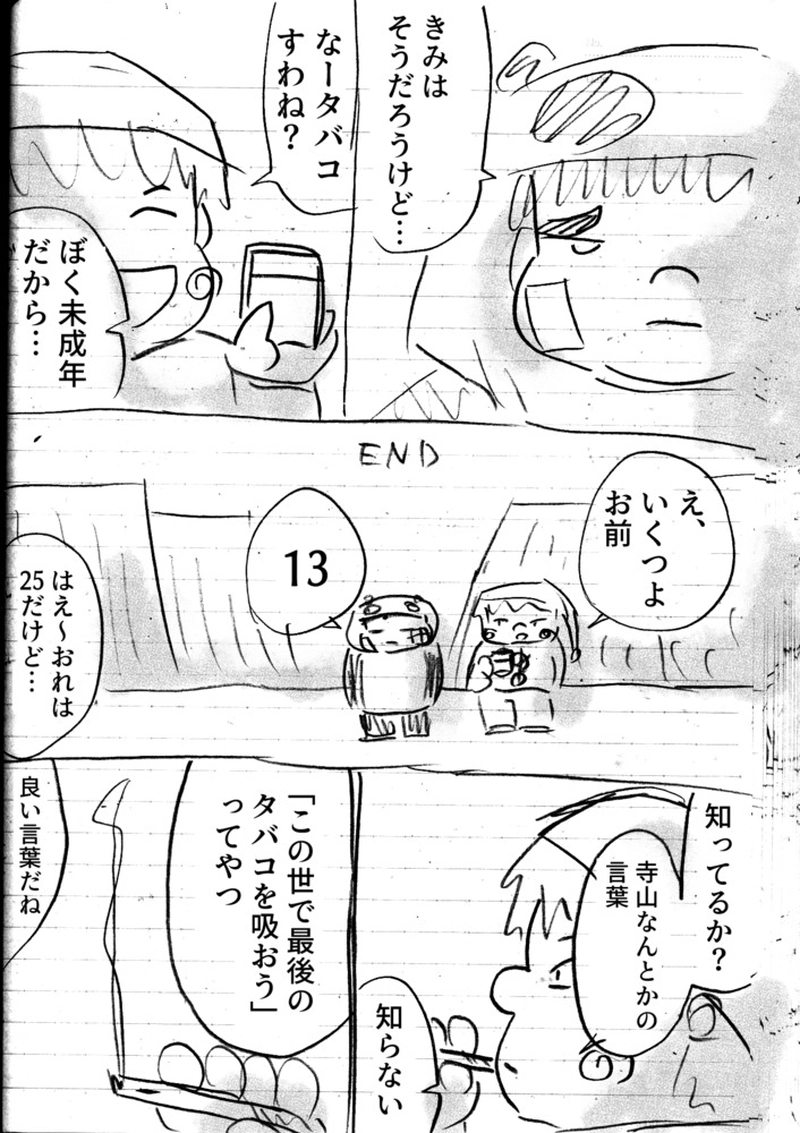 きみは
そうだろうけど…
なータバコ
すわね?
ぼく未成年
だから…
END
え、
いくつよ
お前
13
はえ〜おれは
25だけど…
知ってるか?
寺山なんとかの
言葉
知らない
「この世で最後の
タバコを吸おう」
ってやつ
良い言葉だね